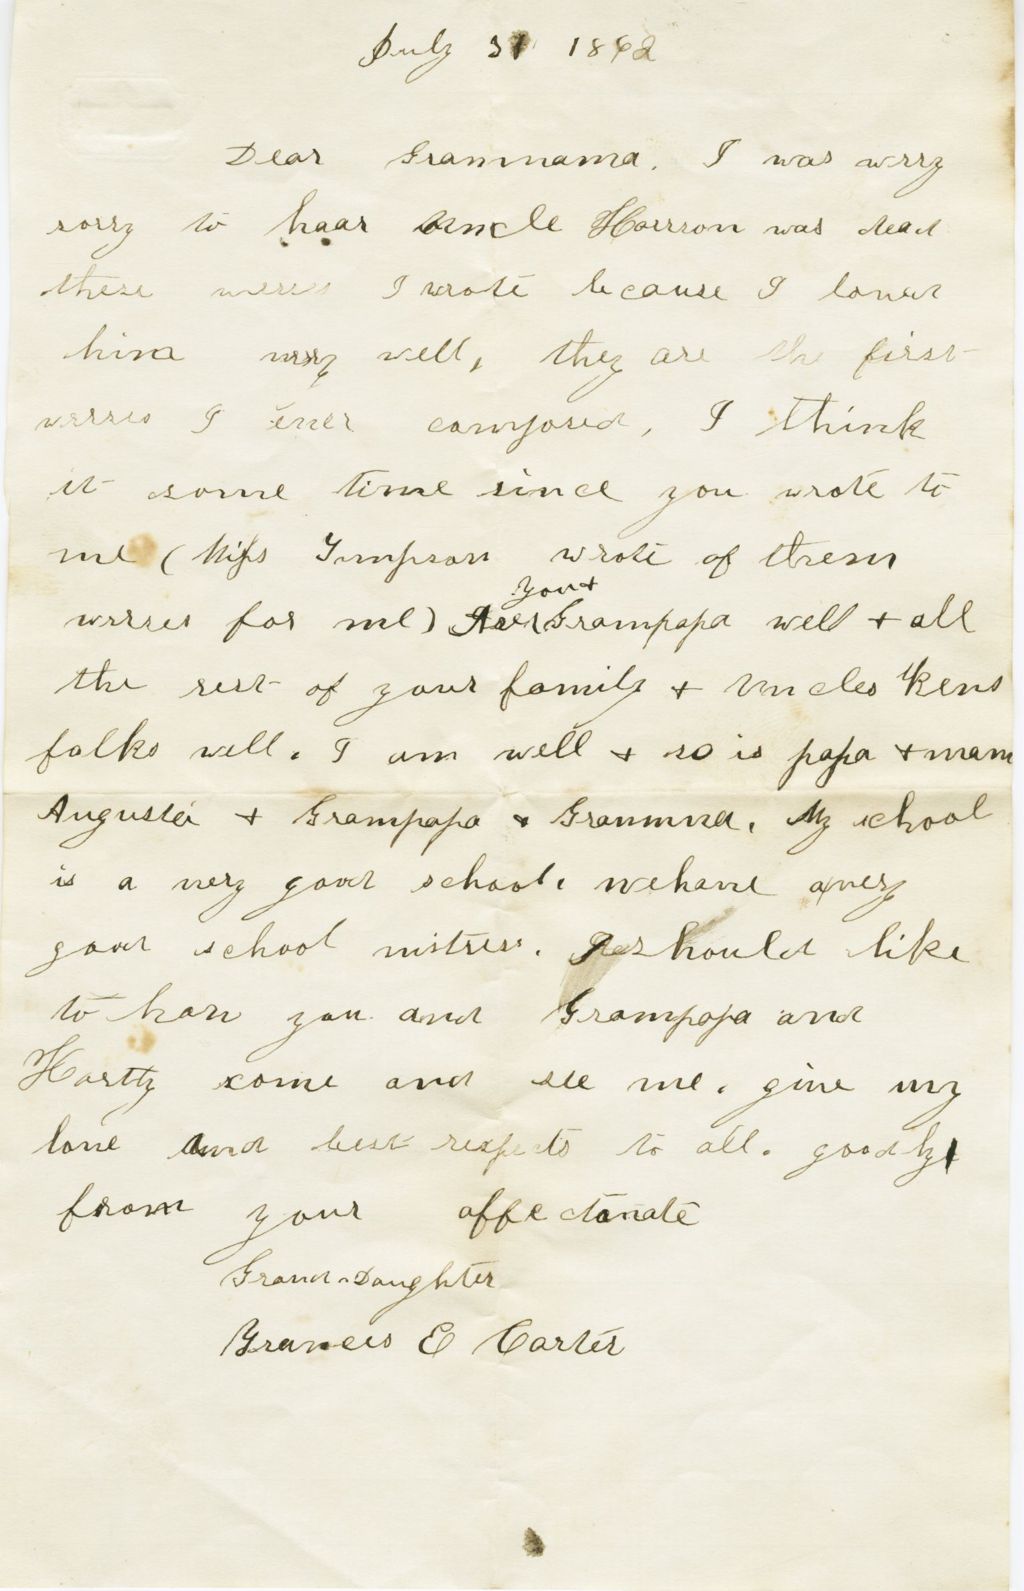 July 31 1862
Dear Grammama. I was very
sorry to haar Uncle Harrson was dead
these verses I wrote because I loved
him very well, they are the first
verses I ever composed, I think
it some time since you wrote to
me ( Miss Timpson wrote of them
you +
verses for me) Are Grampapa well + all
the rest of your family + Uncles Kens
folks well. I am well + so is papa + mam
Augusta + Grampapa + Grammma. My school
is a very good school. we have a very
good school mistress. I should like
to have you and Grampapa and
Hartty come and see me. give my
love and best respects to all. goodby
from your affectonate
Grand-Daughter
Francis E Carter